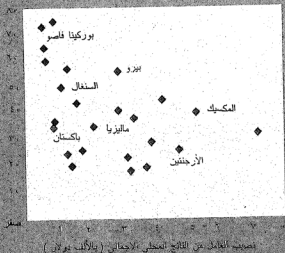 ٨٠
بوركينا فاصو
بيرو
السنغال
٤٠
المكسيك
ماليزيا
٣٠
باكستان
٢٠
الأرجنتين
١٠
صفر
١ ٢ ٣ ٤ ٥ ٦
نصيب العامل من الناتج المحلي الإجمالي ( بالألف دولار )